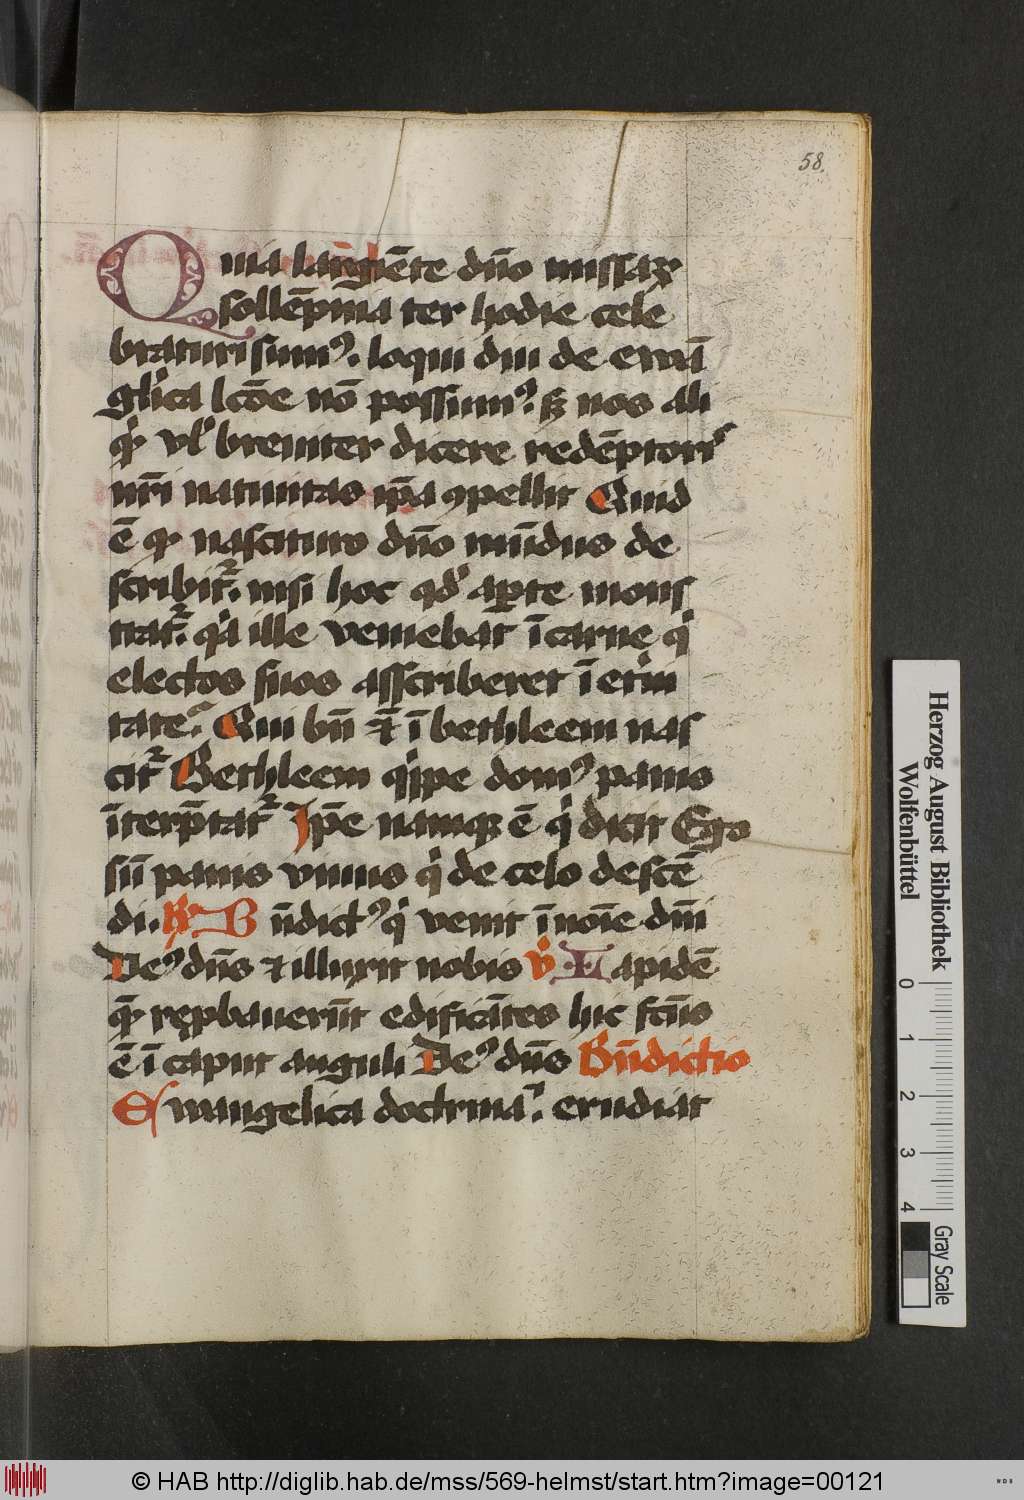 58.
Quia largiēte dn̄o missaꝝ
sollēpnia ter hodie cele
braturi sumꝰ. loqui diu de ewā
gl̓ica lcōe nō possumꝰ. sꝫ nos ali
qͥ vl̓ breuiter dicere redēptoris
nr̄i natiuitas ip̄a ꝯpellit Quid
ē ꝙ nascituro dn̄o mūdus de
scribit᷑. nisi hoc qd̓ aꝑte mons
trat᷑. qͥa ille veniebat ī carne qͥ
electos suos asscriberet ī et̓ni
tate. Qui bn̄ ⁊ ī bethleem nas
cit᷑ Bethleem qͥppe domꝰ panis
īterp̄tat᷑ Ip̄e namqꝫ ē qͥ dicit Ego
sū panis viuus qͥ de celo descē
di. R̓ Bn̄dictꝰ qͥ venit ī noīe dn̄i
Deꝰ dn̄s ⁊ illuxit nobis v̓ Lapidē
quē reꝓbauerūt edificātes hic fc̄us
ē ī caput anguli Deꝰ dn̄s Bn̄dictio
Ewangelica doctrina. erudiat
Herzog August Bibliothek
Wolfenbüttel
0 1 2 3 4
Gray Scale
© HAB http://diglib.hab.de/mss/569-helmst/start.htm?image=00121